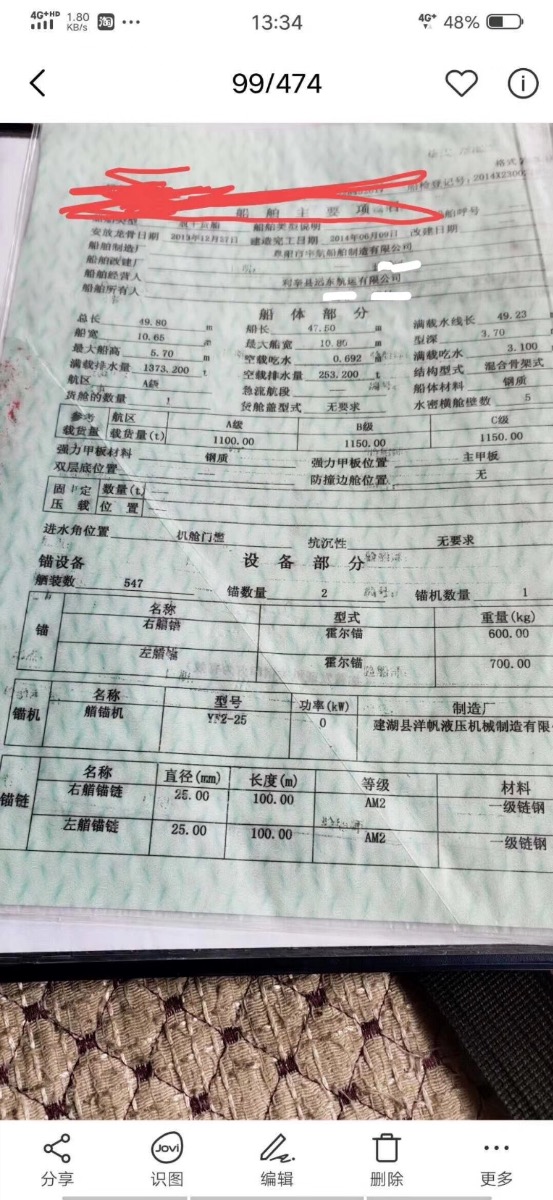 4G+HD 1.80 KB/s 淘 ••• 13:34 4G+ 48%
99/474
格式
船检登记号:2014X2300
船舶主要项
船舶类型 船舶类型说明 船舶呼号
安放龙骨日期 2013年12月27日 建造完工日期 2014年06月09日 改建日期
船舶制造厂 船舶制造有限公司
船舶改建厂
船舶经营人 利辛县远东航运有限公司
船舶所有人
船体部分
总长 49.80 m 船长 47.50 m 满载水线长 49.23
船宽 10.65 m 最大船宽 10.80 m 型深 3.70
最大船高 5.70 m 空载吃水 0.692 m 满载吃水 3.100
满载排水量 1373.200 t 空载排水量 253.200 t 结构型式 混合骨架式
航区 A级 急流航段 船体材料 钢质
货舱的数量 1 货舱盖型式 无要求 水密横舱壁数 5
参考载货量 航区 A级 B级 C级
载货量(t) 1100.00 1150.00 1150.00
强力甲板材料 钢质 强力甲板位置 主甲板
双层底位置 防撞边舱位置 无
固定压载 数量(t)
位置
进水角位置 机舱门槛 抗沉性 无要求
设备部分
锚设备
舾装数 547 锚数量 2 锚机数量 1
锚 名称 型式 重量(kg)
右艏锚 霍尔锚 600.00
左艏锚 霍尔锚 700.00
锚机 名称 型号 功率(kW) 制造厂
艏锚机 0 建湖县洋帆液压机械制造有限
锚链 名称 直径(mm) 长度(m) 等级 材料
右艏锚链 25.00 100.00 AM2 一级链钢
左艏锚链 25.00 100.00 AM2 一级链钢
Jovi
分享 识图 编辑 删除 更多